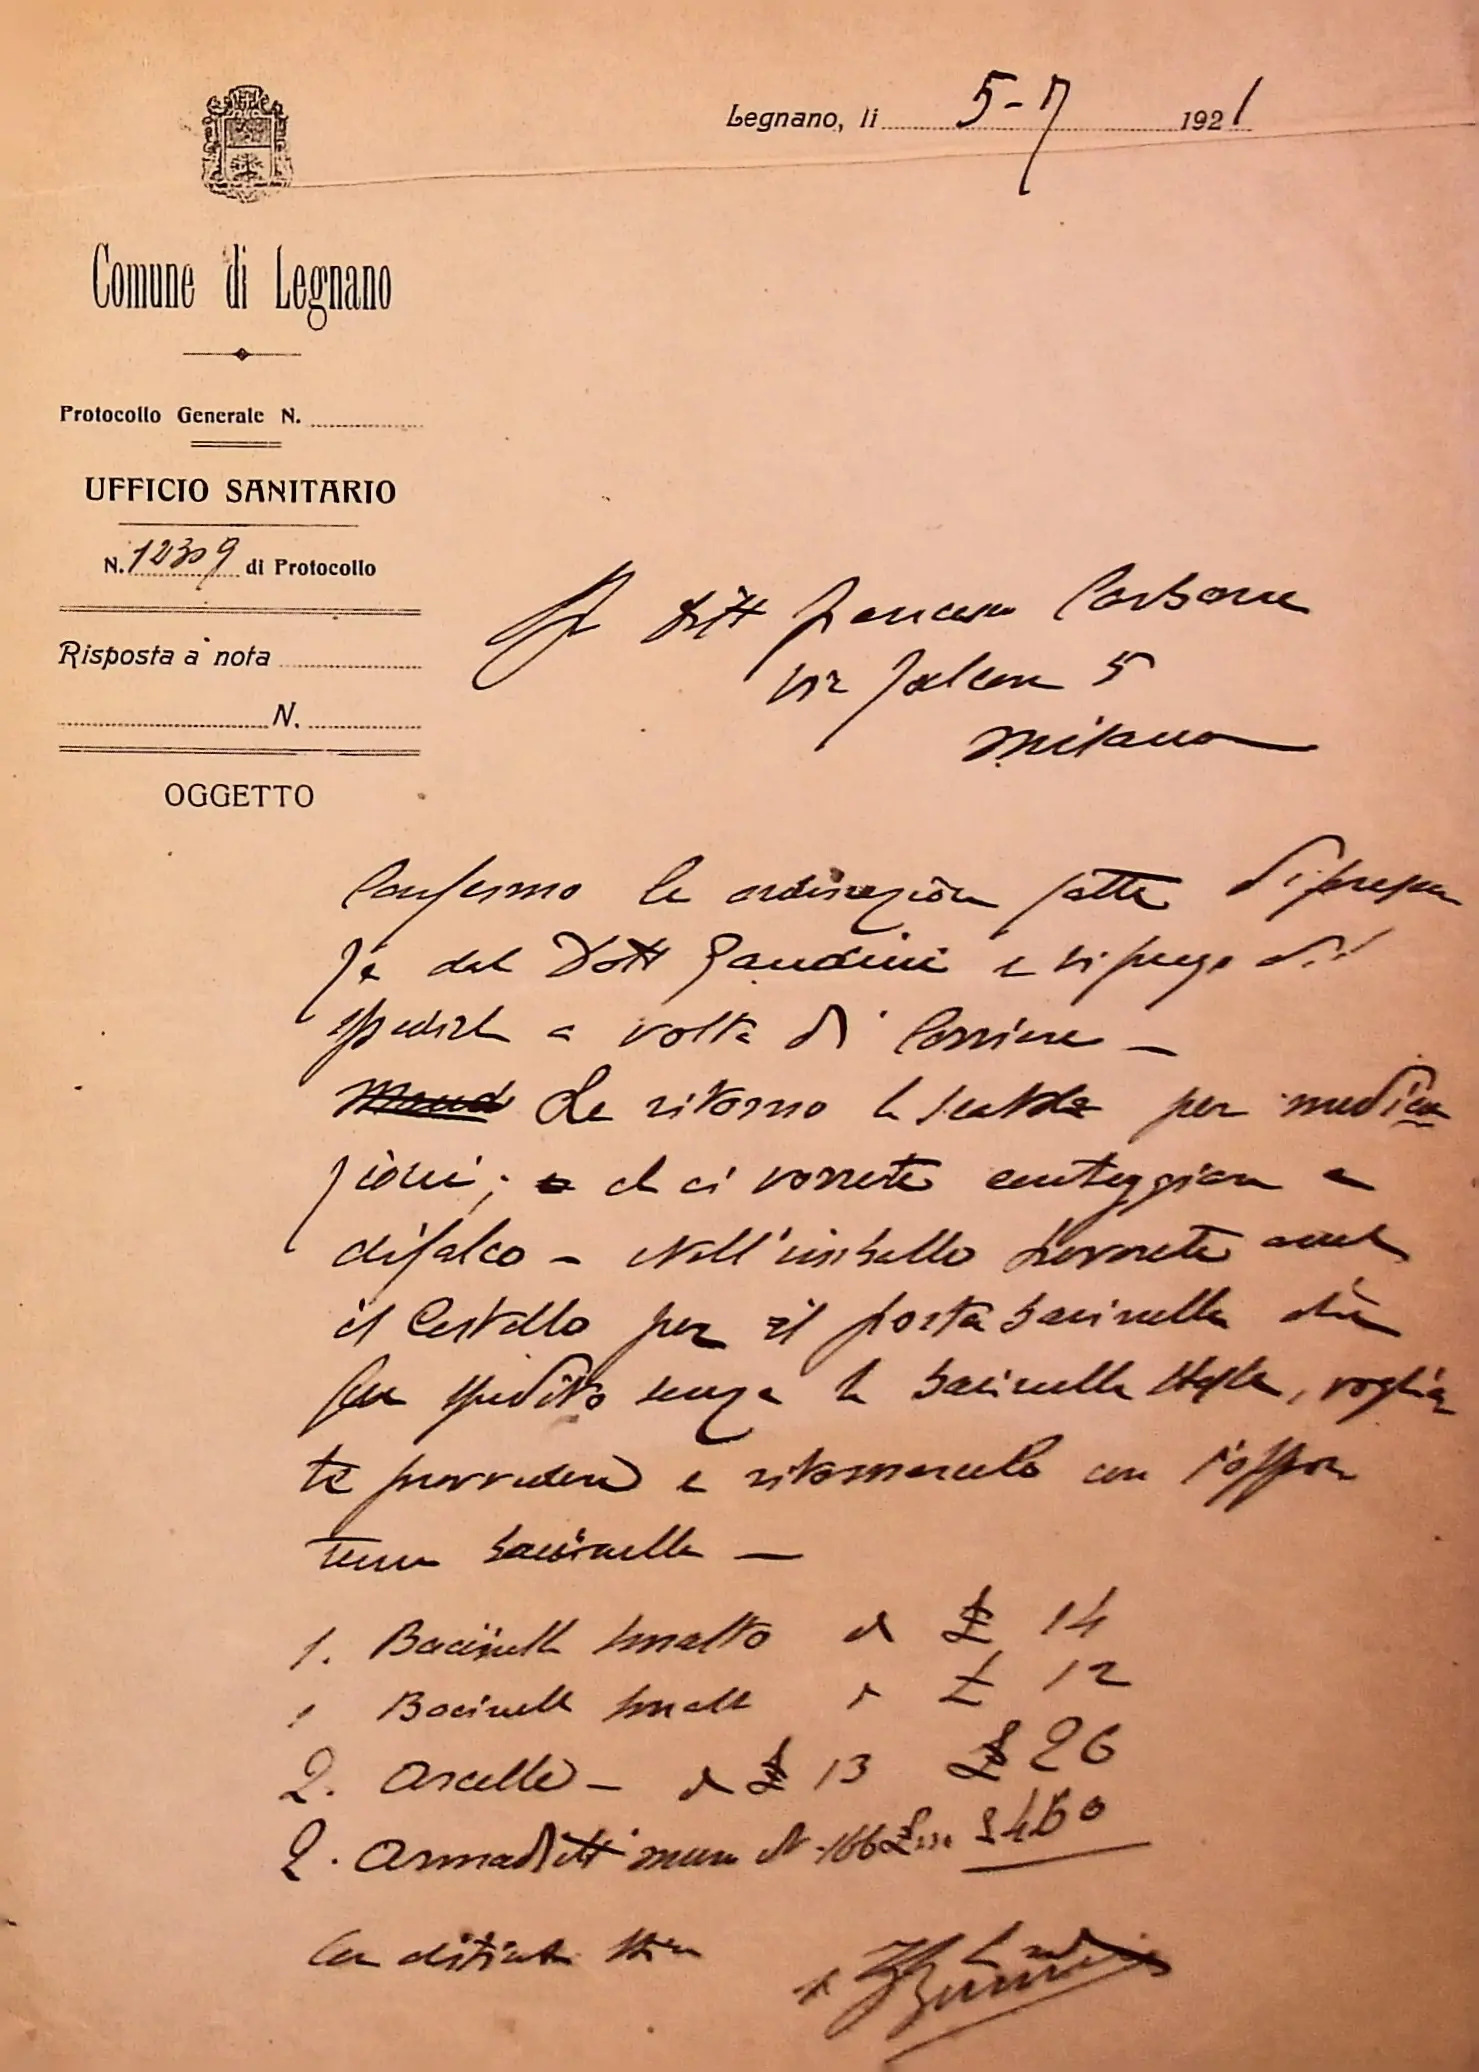 Legnano, li 5-7 1921
Comune di Legnano
Protocollo Generale N.
UFFICIO SANITARIO
N. 12309 di Protocollo
Risposta a nota
N.
OGGETTO
Ditt Francesco Carbone
via Falcone 5
Milano
Confermo le ordinazioni fatte di presen
za dal Dott Gandini e vi prego di
spedirle a volta di Corriere —
Le ritorno la scatola per medica
zioni; che ci vorrete conteggiare a
difalco — Nell'imballo troverete anche
il Cestello per il porta bacinella che
fu spedito senza la bacinella stessa, voglia
te provvedere e ritornarcelo con l'oppor
tuna bacinella —
1. Bacinella smalto a £ 14
1 Bacinella smalto a £ 12
2. Ascelle — a £ 13 £ 26
2. Armadietti muro N. 166 £
Con distinta stima